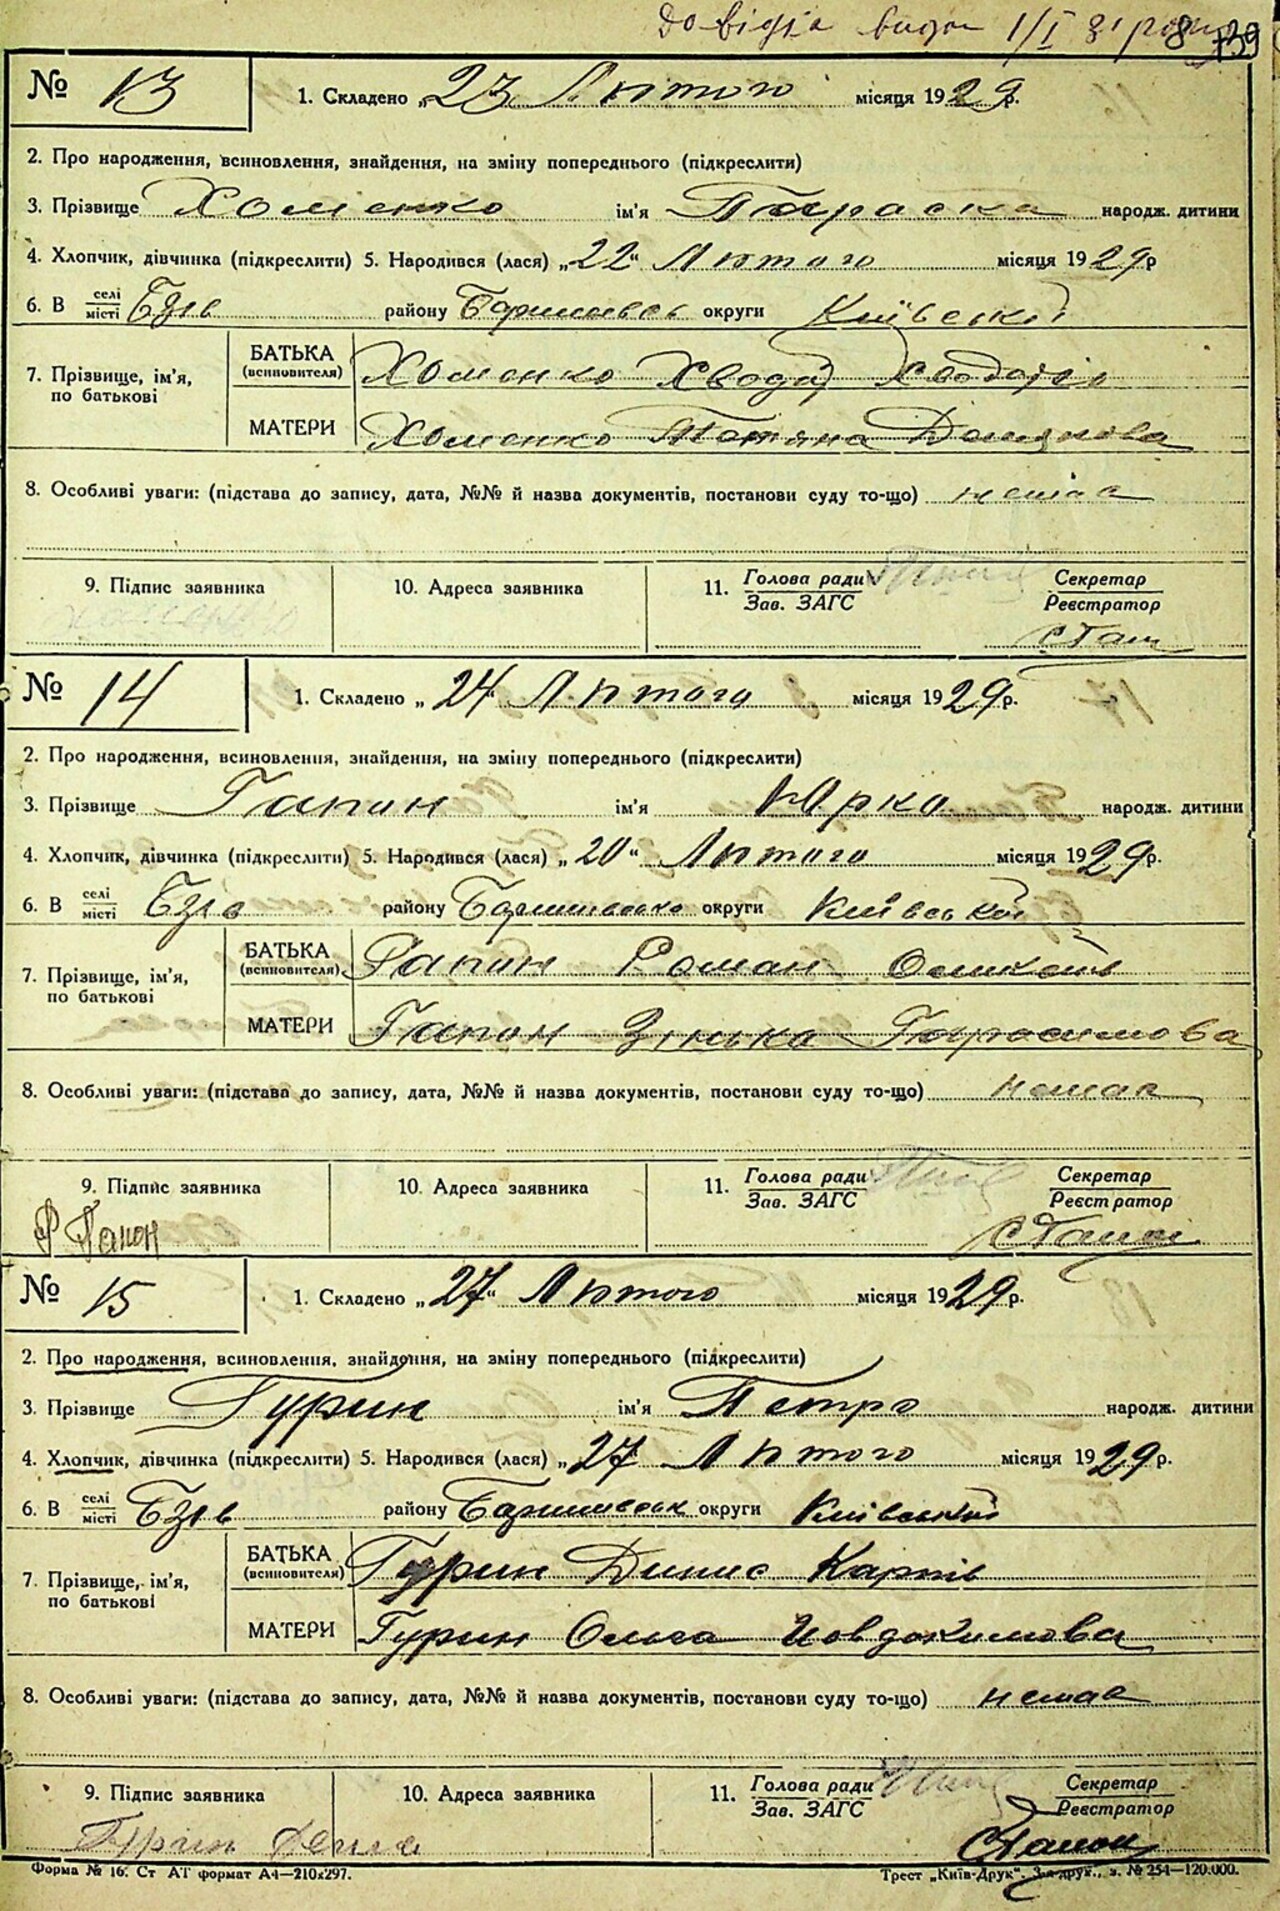 довідка видан 1/I 31 року 8 739
№ 13 1. Складено „23 Лютого місяця 1929 р.
2. Про народження, всиновлення, знайдення, на зміну попереднього (підкреслити)
3. Прізвище Хоменко ім'я Параска народж. дитини
4. Хлопчик, дівчинка (підкреслити) 5. Народився (лася) „22“ Лютого місяця 1929 р
6. В селі/місті Бзів району Баришівсь округи Київської
7. Прізвище, ім'я, по батькові
БАТЬКА (всиновителя) Хоменко Хводір Хведорів
МАТЕРИ Хоменко Тотяна Домянова
8. Особливі уваги: (підстава до запису, дата, №№ й назва документів, постанови суду то-що) немає
9. Підпис заявника 10. Адреса заявника 11. Голова ради/Зав. ЗАГС Секретар/Реєстратор
№ 14 1. Складено „24“ Лютого місяця 1929 р.
2. Про народження, всиновлення, знайдення, на зміну попереднього (підкреслити)
3. Прізвище Гапон ім'я Юрко народж. дитини
4. Хлопчик, дівчинка (підкреслити) 5. Народився (лася) „20“ Лютого місяця 1929 р.
6. В селі/місті Бзів району Баришівсько округи Київської
7. Прізвище, ім'я, по батькові
БАТЬКА (всиновителя) Гапон Роман
МАТЕРИ Гапон Зінька Гарасимова
8. Особливі уваги: (підстава до запису, дата, №№ й назва документів, постанови суду то-що) немає
9. Підпис заявника 10. Адреса заявника 11. Голова ради/Зав. ЗАГС Секретар/Реєстратор
Р Гапон
№ 15 1. Складено „27“ Лютого місяця 1929 р.
2. Про народження, всиновлення, знайдення, на зміну попереднього (підкреслити)
3. Прізвище Гурин ім'я Петро народж. дитини
4. Хлопчик, дівчинка (підкреслити) 5. Народився (лася) „27 Лютого місяця 1929 р.
6. В селі/місті Бзів району Баришівськ округи Київській
7. Прізвище, ім'я, по батькові
БАТЬКА (всиновителя) Гурин Динис Карпів
МАТЕРИ Гурин Ольга Йовдокимова
8. Особливі уваги: (підстава до запису, дата, №№ й назва документів, постанови суду то-що) немає
9. Підпис заявника 10. Адреса заявника 11. Голова ради/Зав. ЗАГС Секретар/Реєстратор
Форма № 16. Ст АТ формат А4—210x297. Трест „Київ-Друк“. 3-я друк., з. № 254—120.000.